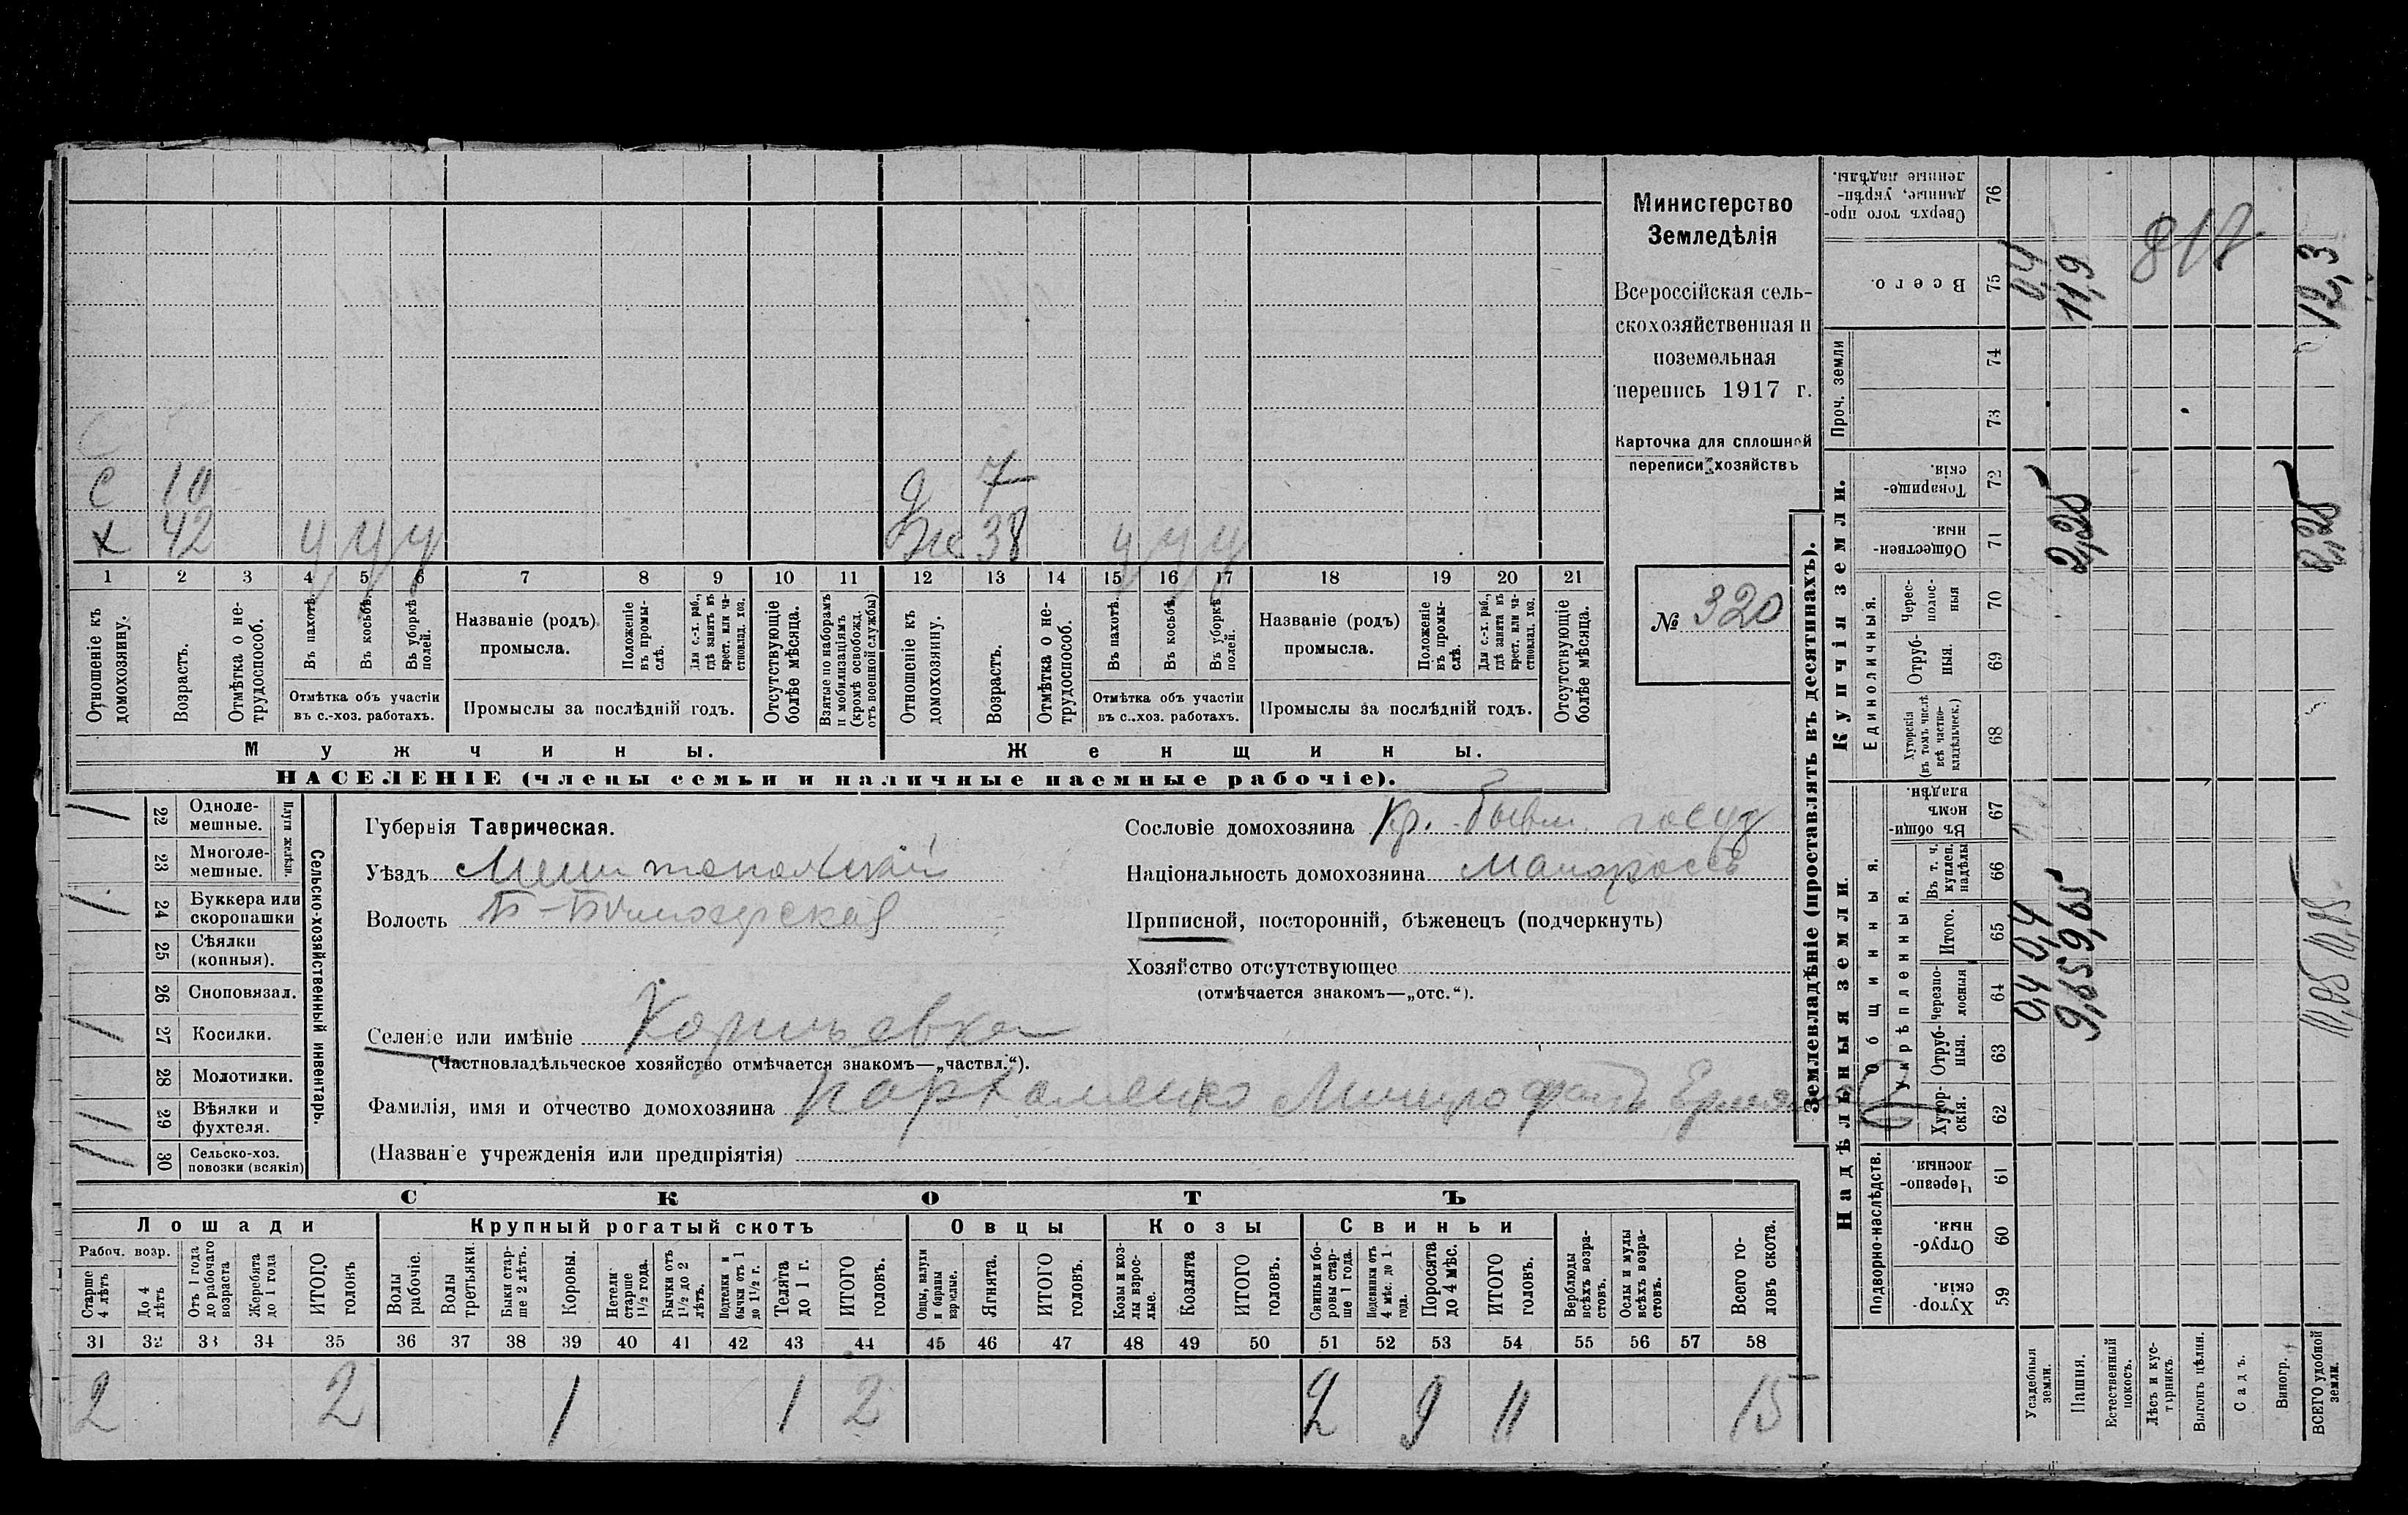 Министерство
Земледѣлія
Всероссійская сель-
скохозяйственная и
поземельная
перепись 1917 г.
Карточка для сплошной
переписи хозяйствъ
№ 320
С 10
д 7
х 42 у у у
Же 38 у у у
1 2 3 4 5 6 7 8 9 10 11 12 13 14 15 16 17 18 19 20 21
Отношеніе къ домохозяину.
Возрастъ.
Отмѣтка о не-трудоспособ.
Въ пахотѣ.
Въ косьбѣ.
Въ уборкѣ полей.
Отмѣтка объ участіи въ с.-хоз. работахъ.
Названіе (родъ) промысла.
Положеніе въ промы-слѣ.
Для с.-х. раб., гдѣ занятъ въ крест. или ча-стновлад. хоз.
Промыслы за послѣдній годъ.
Отсутствующіе болѣе мѣсяца.
Взятые по наборамъ и мобилизаціямъ (кромѣ освобожд. отъ военной службы)
Отношеніе къ домохозяину.
Возрастъ.
Отмѣтка о не-трудоспособ.
Въ пахотѣ.
Въ косьбѣ.
Въ уборкѣ полей.
Отмѣтка объ участіи въ с.-хоз. работахъ.
Названіе (родъ) промысла.
Положеніе въ промы-слѣ.
Для с.-х. раб., гдѣ занята въ крест. или ча-стновлад. хоз.
Промыслы за послѣдній годъ.
Отсутствующіе болѣе мѣсяца.
Мужчины. Женщины.
НАСЕЛЕНІЕ (члены семьи и наличные наемные рабочіе).
Сельско-хозяйственный инвентарь.
Плуги желѣзн.
/ 22 Одноле-мешные.
23 Многоле-мешные.
/ 24 Буккера или скоропашки
25 Сѣялки (конныя).
26 Сноповязал.
/ 27 Косилки.
28 Молотилки.
/ 29 Вѣялки и фухтеля.
30 Сельско-хоз. повозки (всякія)
Губернія Таврическая.
Уѣздъ Мелитопольскій
Волость Б-Бѣлозерская
Селеніе или имѣніе
(Частновладѣльческое хозяйство отмѣчается знакомъ—„частвл.“).
Фамилія, имя и отчество домохозяина Пархоменко Митрофанъ
(Названіе учрежденія или предпріятія)
Сословіе домохозяина Кр. бывш. госуд
Національность домохозяина Малороссъ
Приписной, посторонній, бѣженецъ (подчеркнуть)
Хозяйство отсутствующее
(отмѣчается знакомъ—„отс.“).
СКОТЪ
Лошади Крупный рогатый скотъ Овцы Козы Свиньи
Рабоч. возр.
Старше 4 лѣтъ
До 4 лѣтъ
Отъ 1 года до рабочаго возраста
Жеребята до 1 года
ИТОГО головъ
Волы рабочіе.
Волы третьяки.
Быки стар-ше 2 лѣтъ.
Коровы.
Нетели старше 1½ года.
Бычки отъ 1½ до 2 лѣтъ.
Подтелки и бычки отъ 1 до 1½ г.
Телята до 1 г.
ИТОГО головъ.
Овцы, валухи и бараны взрослые.
Ягнята.
ИТОГО головъ.
Козы и коз-лы взрос-лые.
Козлята
ИТОГО головъ.
Свиньи и бо-ровы стар-ше 1 года.
Подсвинки отъ 4 мѣс. до 1 года.
Поросята до 4 мѣс.
ИТОГО головъ.
Верблюды всѣхъ возра-стовъ.
Ослы и мулы всѣхъ возра-стовъ.
Всего го-ловъ скота.
31 32 33 34 35 36 37 38 39 40 41 42 43 44 45 46 47 48 49 50 51 52 53 54 55 56 57 58
2 2 1 1 2 2 9 11 15
Землевладѣніе (проставлять въ десятинахъ).
Надѣльныя земли
Подворно-наслѣдств.
Хутор-скія. 59
Отруб-ныя. 60
Черезпо-лосныя. 61
Общинныя.
Укрѣпленныя.
Хутор-скія. 62
Отруб-ныя. 63
Черезпо-лосныя 64
Итого. 65
Въ т. ч. куплен. надѣлы 66
Въ общин-номъ владѣн. 67
Купчія земли.
Единоличныя.
Хуторскія (въ томъ числѣ всѣ частно-владѣльческ.) 68
Отруб-ныя. 69
Черес-полос-ныя 70
Обществен-ныя. 71
Товарище-скія. 72
Проч. земли
73 74
Всего. 75
Сверхъ того про-данные, укрѣп-ленные надѣлы. 76
Усадебныя земли. 0,4 0,4 0,4
Пашня. 9,65 9,65 2,25 11,9
Естественный покосъ.
Лѣсъ и кус-тарникъ.
Выгонъ цѣлин.
Садъ.
Виногр.
ВСЕГО удобной земли. 2,25 12,3